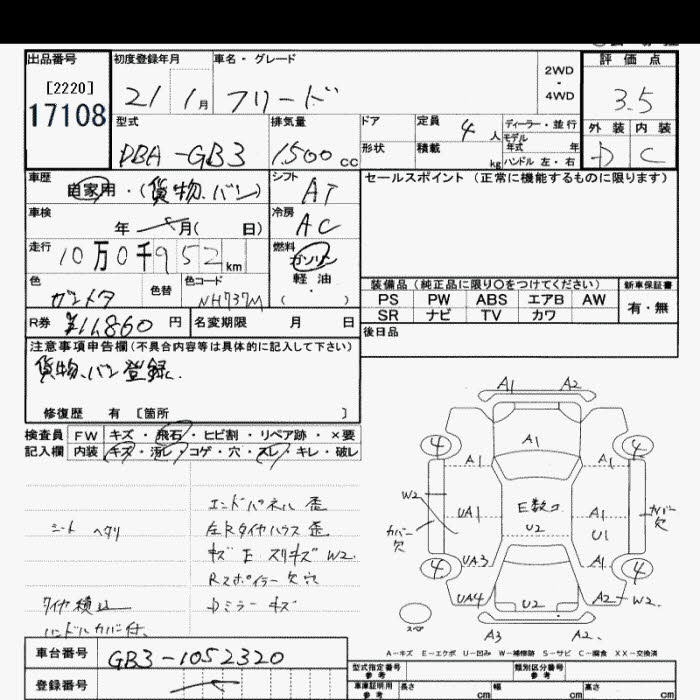 出品番号 初度登録年月 車名・グレード 2WD・4WD 評価点
[2220]
17108
21 1月 フリード 3.5
型式 排気量 ドア 定員 4人 ディーラー・並行 外装 内装
モデル年式 年
DBA-GB3 1,500cc 形状 積載 kg ハンドル 左・右 D C
車歴 自家用・(貨物、バン) シフト AT セールスポイント(正常に機能するものに限ります)
車検 年 月( 日) 冷房 AC
走行 10万0千952km 燃料 ガソリン
軽油
・
( )
色 ガンメタ 色替 色コード NH737M
装備品(純正品に限り○をつけてください) 新車保証書
PS PW ABS エアB AW 有・無
SR ナビ TV カワ
R券 ¥11,860円 名変期限 月 日 後日品
注意事項申告欄(不具合内容等は具体的に記入して下さい)
貨物、バン登録、
修復歴 有 [箇所 ]
検査員 FW キズ・飛石・ヒビ割・リペア跡・×要
記入欄 内装 キズ・汚レ・コゲ・穴・スレ・キレ・破レ
シート ヘタリ
タイヤ積込
ハンドルカバー付、
エンドパネル 歪
左Rタイヤハウス 歪
キズ E スリキズ W2.
Rスポイラー欠穴
Dミラーキズ
A1 A2
4 A1 4
A1 A1
W2 UA1 E数コ A1
カバー欠 U2 U1 カバー欠
UA3 A1
4 4
UA4 U2 A2 W2.
スペ A3 A2.
A-キズ E-エクボ U-凹み W-補修跡 S-サビ C-腐食 XX-交換済
車台番号 GB3-1052320
登録番号
型式指定番号 参考 類別区分番号 参考
車庫証明用 参考 長さ cm 幅 cm 高さ cm